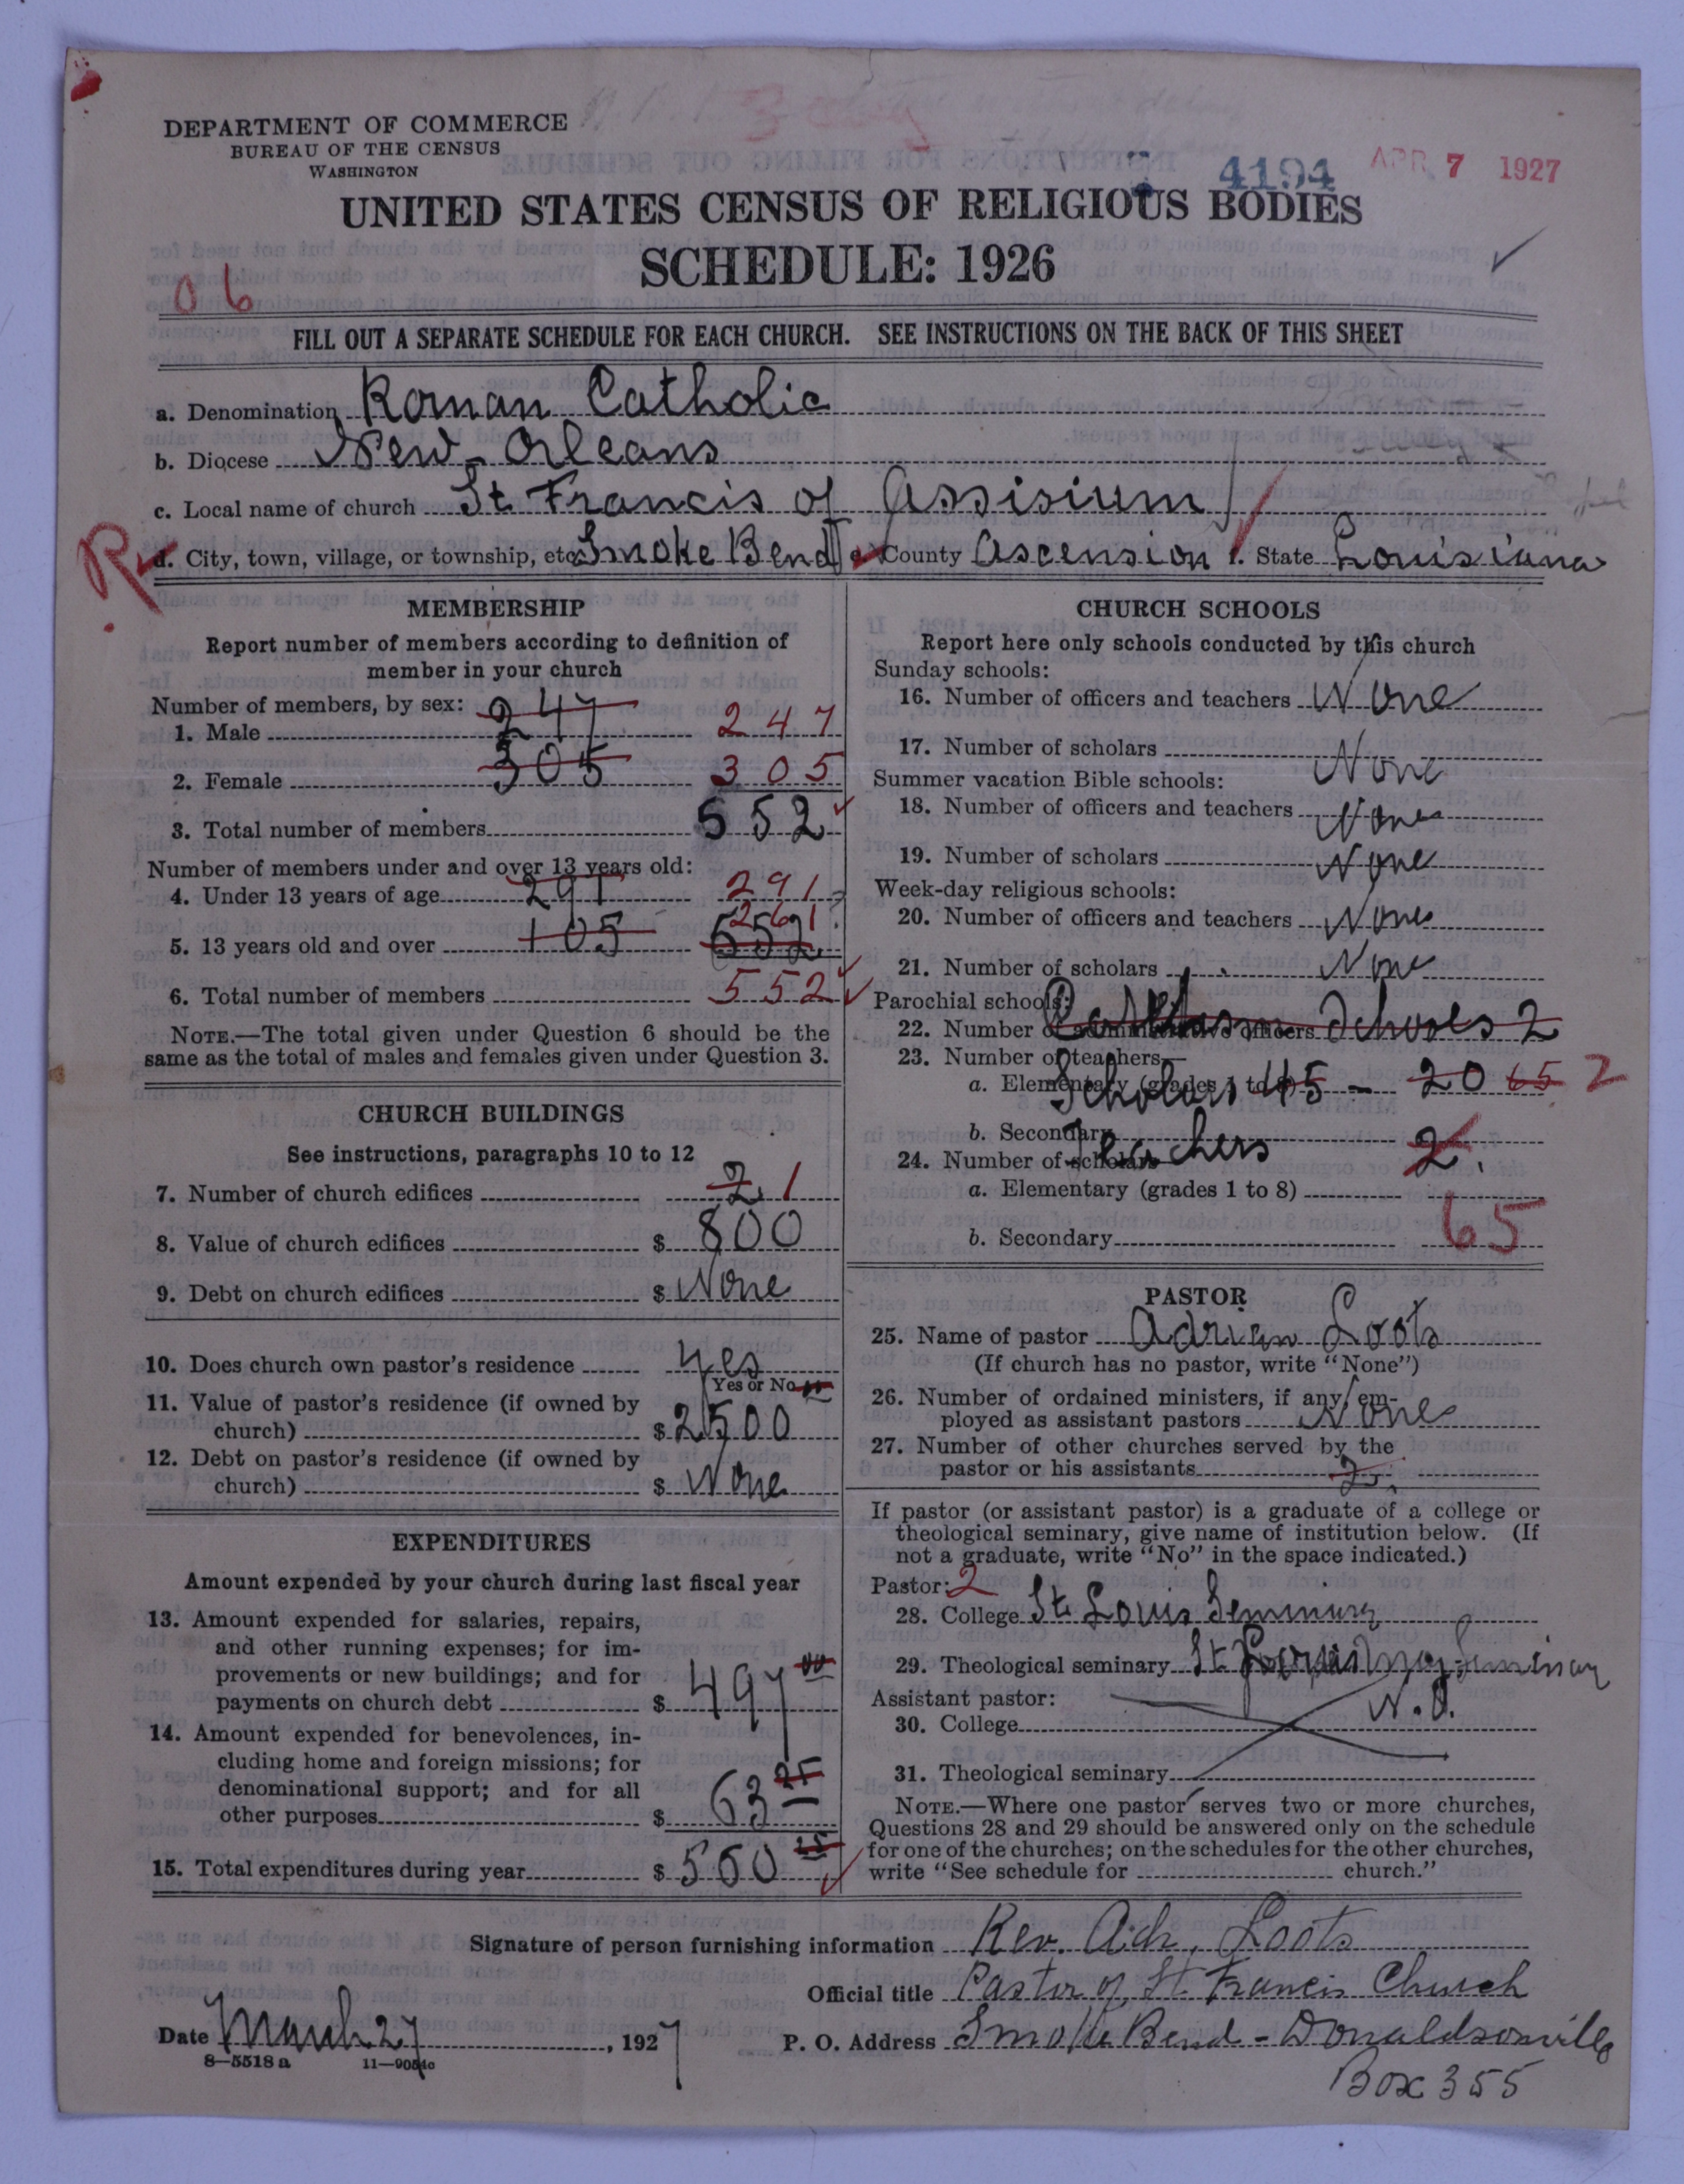 DEPARTMENT OF COMMERCE
BUREAU OF THE CENSUS
WASHINGTON
4194 APR 7 1927
UNITED STATES CENSUS OF RELIGIOUS BODIES
SCHEDULE: 1926
06
FILL OUT A SEPARATE SCHEDULE FOR EACH CHURCH. SEE INSTRUCTIONS ON THE BACK OF THIS SHEET
a. Denomination Roman Catholic
b. Diocese New-Orleans
c. Local name of church St Francis of Assisium
R d. City, town, village, or township, etc. Smoke Bend e. County Ascension f. State Louisiana
MEMBERSHIP
Report number of members according to definition of
member in your church
Number of members, by sex:
1. Male 247 247
2. Female 305 305
3. Total number of members 552
Number of members under and over 13 years old:
4. Under 13 years of age 291 291
5. 13 years old and over 105 552 261
6. Total number of members 552
NOTE.—The total given under Question 6 should be the
same as the total of males and females given under Question 3.
CHURCH BUILDINGS
See instructions, paragraphs 10 to 12
7. Number of church edifices 2 1
8. Value of church edifices $ 800
9. Debt on church edifices $ None
10. Does church own pastor's residence Yes
Yes or No
11. Value of pastor's residence (if owned by
church) $ 2500
12. Debt on pastor's residence (if owned by
church) $ None
EXPENDITURES
Amount expended by your church during last fiscal year
13. Amount expended for salaries, repairs,
and other running expenses; for im-
provements or new buildings; and for
payments on church debt $ 497 00
14. Amount expended for benevolences, in-
cluding home and foreign missions; for
denominational support; and for all
other purposes $ 63 25
15. Total expenditures during year $ 560 25
CHURCH SCHOOLS
Report here only schools conducted by this church
Sunday schools:
16. Number of officers and teachers None
17. Number of scholars None
Summer vacation Bible schools:
18. Number of officers and teachers None
19. Number of scholars None
Week-day religious schools:
20. Number of officers and teachers None
21. Number of scholars None
Parochial schools:
22. Number of administrative officers Schools 2
23. Number of teachers—
a. Elementary (grades 1 to 8) Scholars 45 - 20 65 2
b. Secondary
24. Number of scholars Teachers 2.
a. Elementary (grades 1 to 8)
65
b. Secondary
PASTOR
25. Name of pastor Adrian Loots
(If church has no pastor, write "None")
26. Number of ordained ministers, if any, em-
ployed as assistant pastors None
27. Number of other churches served by the
pastor or his assistants 2.
If pastor (or assistant pastor) is a graduate of a college or
theological seminary, give name of institution below. (If
not a graduate, write "No" in the space indicated.)
Pastor: 2
28. College St Louis Seminary
29. Theological seminary St Louis Seminary
Assistant pastor: N.O.
30. College
31. Theological seminary
NOTE.—Where one pastor serves two or more churches,
Questions 28 and 29 should be answered only on the schedule
for one of the churches; on the schedules for the other churches,
write "See schedule for church."
Signature of person furnishing information Rev. Adr. Loots
Official title Pastor of St. Francis Church
Date March 27, 1927 P. O. Address Smoke Bend - Donaldsonville
8—5518 a 11—9054c
Box 355